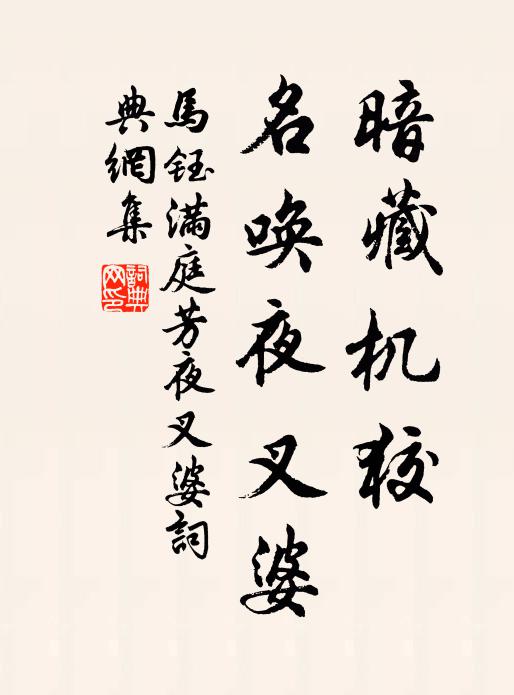 暗藏机狡
名唤夜叉婆
馬鈺满庭芳夜叉婆詞
典網集
詞典網印